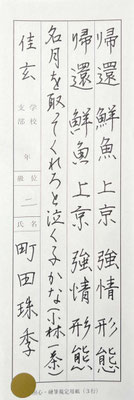 帰還 鮮魚 上京 強情 形態
帰還 鮮魚 上京 強情 形態
名月を取てくれろと泣く子かな(小林一茶)
佳玄
学校
支部
年
級位
二
氏名
町田珠季
硬筆規定用紙(3行)